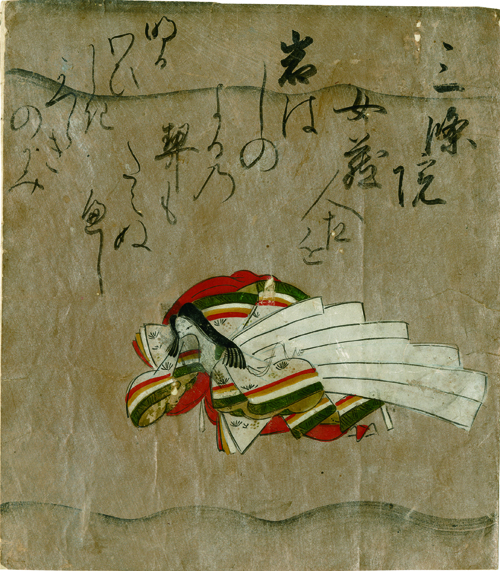 三條院
女蔵
人左近
岩は
しの
よる乃
契も
たえぬ
へし
明る
わひしき
かつらき
のかみ